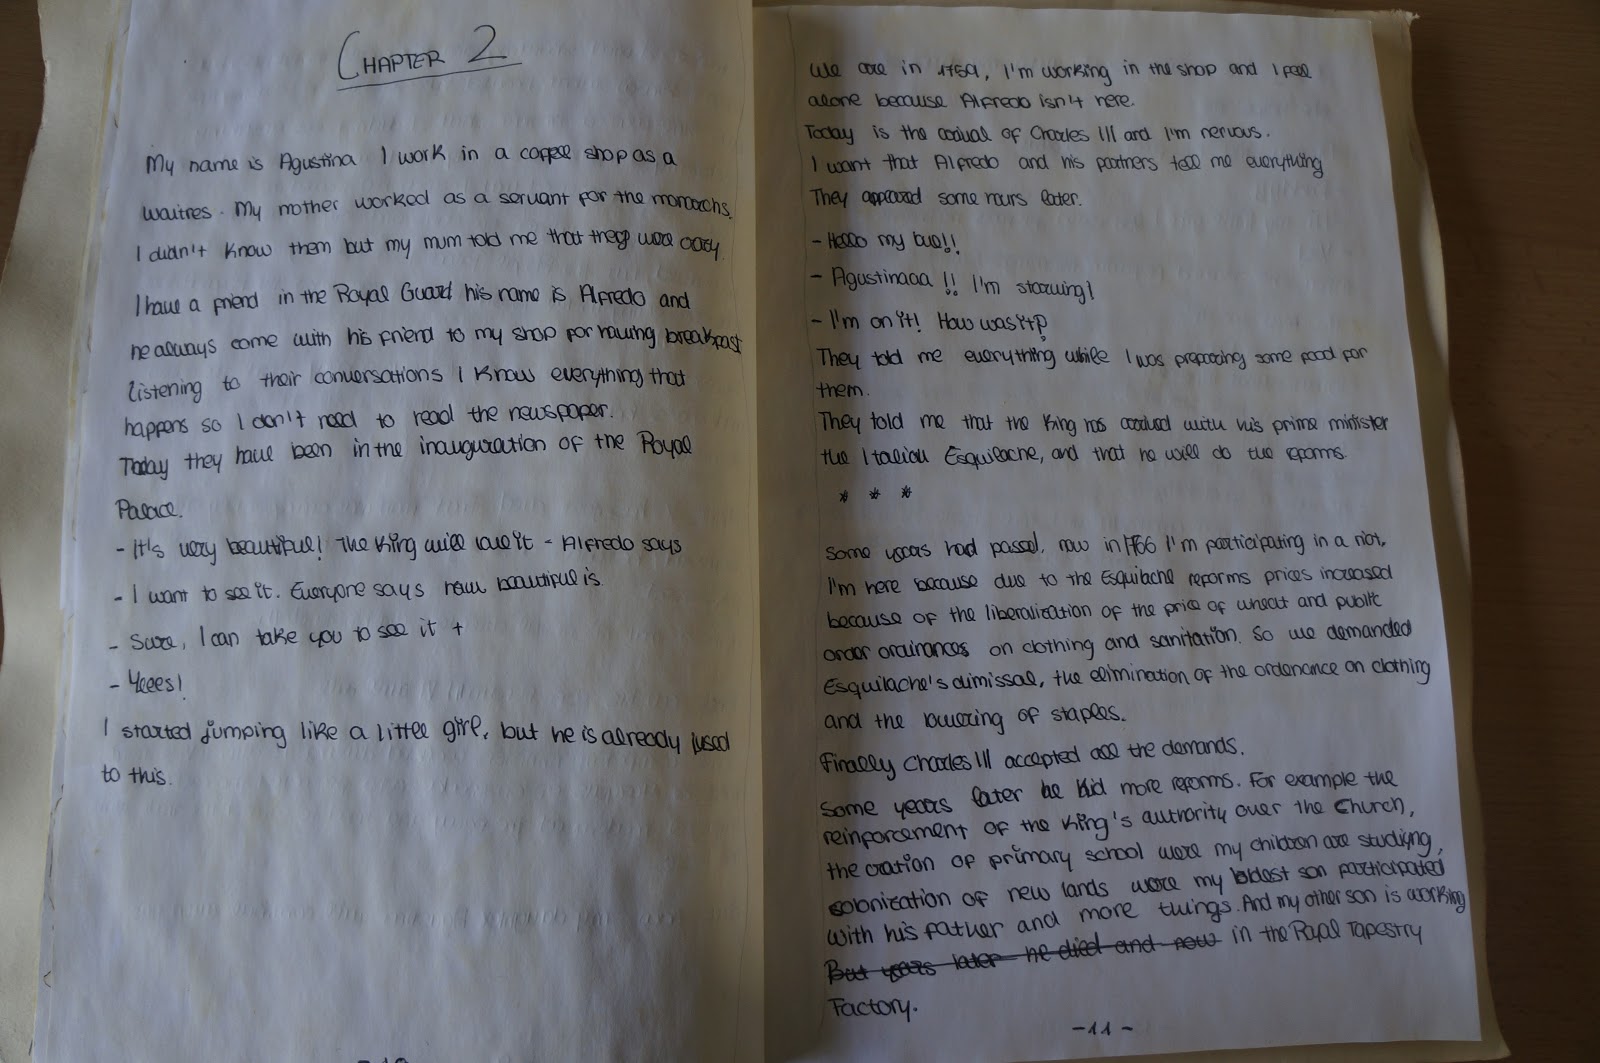 CHAPTER 2
My name is Agustina I work in a coffee shop as a
waitres. My mother worked as a servant for the monarchs.
I didn't know them but my mum told me that they were crazy.
I have a friend in the Royal Guard his name is Alfredo and
he always come with his friend to my shop for having breakfast
listening to their conversations I know everything that
happens so I don't need to read the newspaper.
Today they have been in the inauguration of the Royal
Palace.
- It's very beautiful! The King will love it - Alfredo says
- I want to see it. Everyone says how beautiful is.
- Sure, I can take you to see it +
- Yeees!
I started jumping like a little girl, but he is already used
to this.
We are in 1759, I'm working in the shop and I feel
alone because Alfredo isn't here.
Today is the arrival of Charles III and I'm nervous.
I want that Alfredo and his partners tell me everything
They appeared some hours later.
- Hello my bue!!
- Agustinaaa!! I'm starwing!
- I'm on it! How was it?
They told me everything while I was preparing some food for
them.
They told me that the King has arrived with his prime minister
the Italian Esquilache, and that he will do the reforms.
* * *
Some years had passed, now in 1766 I'm participating in a riot,
I'm here because due to the Esquilache reforms prices increased
because of the liberalization of the price of wheat and public
order ordinances on clothing and sanitation. So we demanded
Esquilache's dimissal, the elimination of the ordenance on clothing
and the lowering of staples.
Finally Charles III accepted all the demands.
Some years later he did more reforms. For example the
reinforcement of the King's authority over the Church,
the cration of primary school were my children are studiyng,
colonization of new lands were my oldest son participated
with his father and more things. And my other son is working
But years later he died and now in the Royal Tapestry
Factory.
-11-